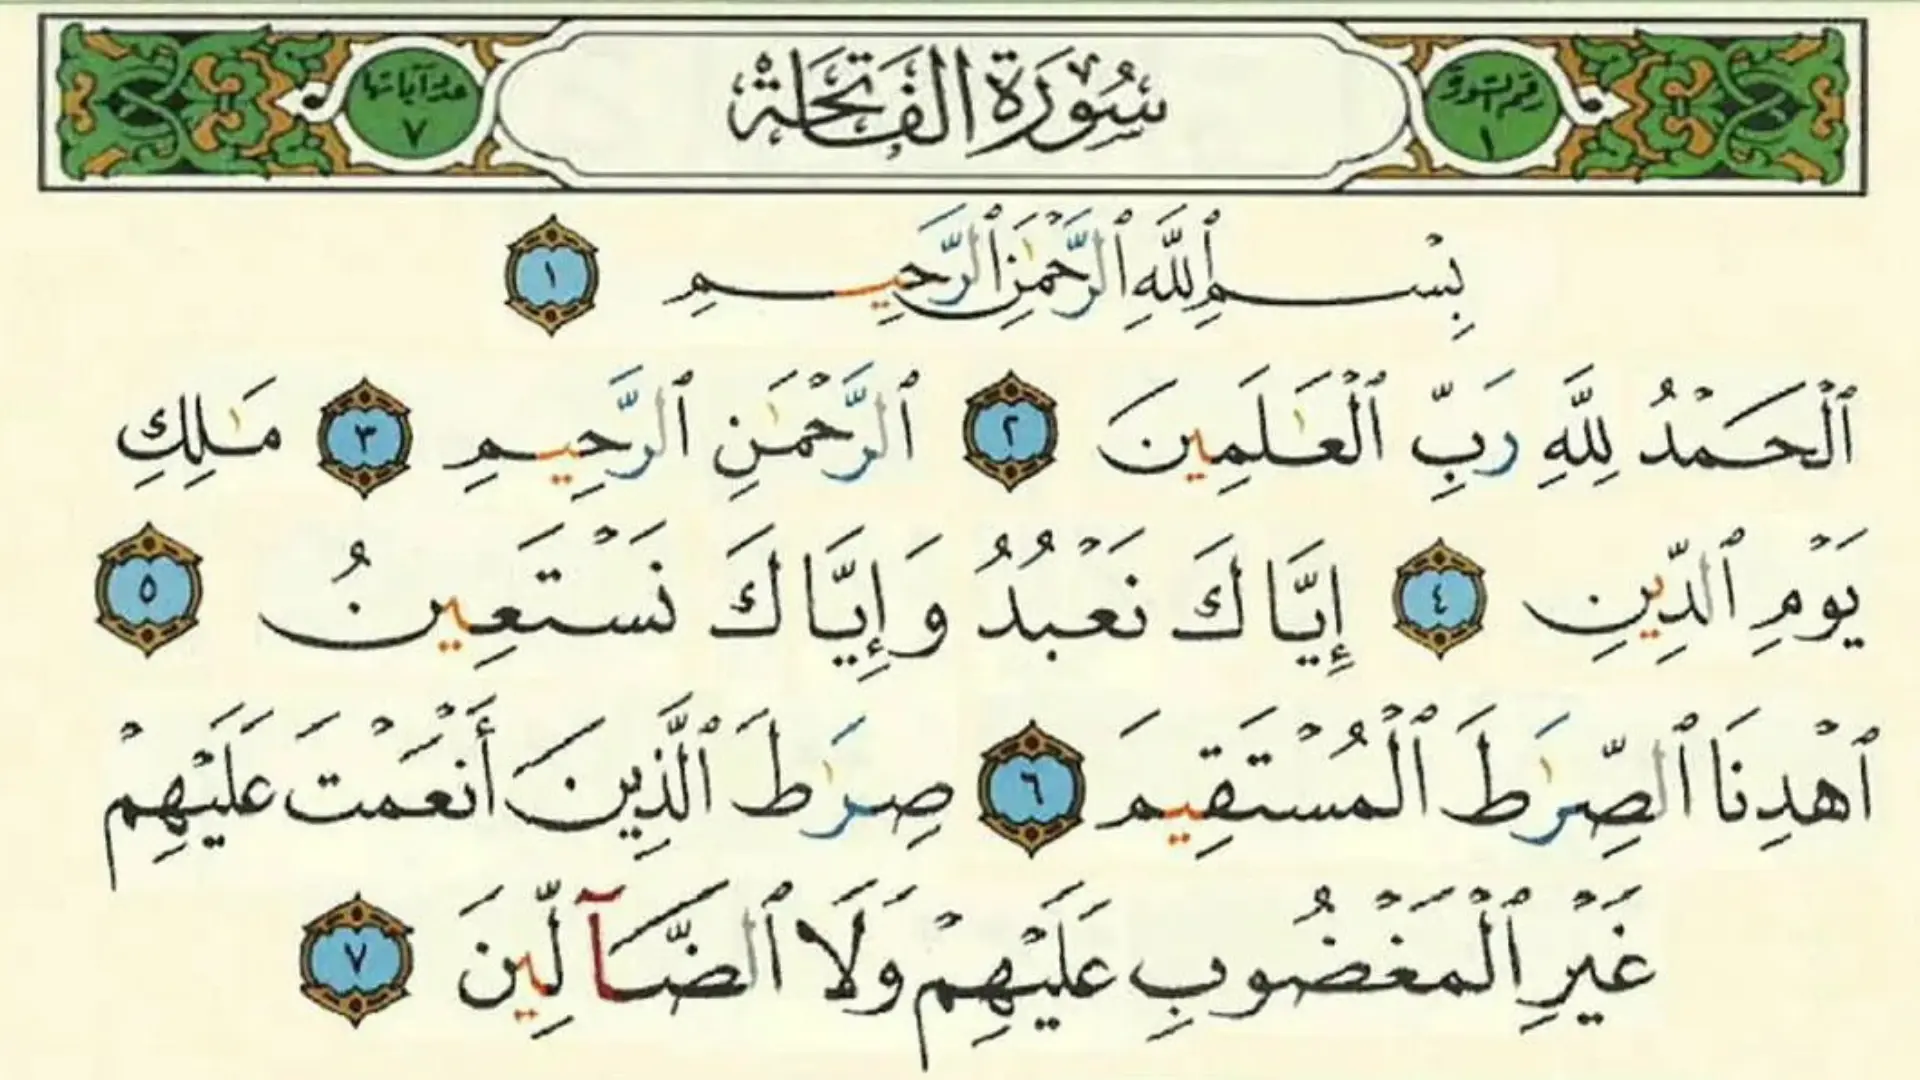 عدد آياتها ٧ سُورَةُ الفَاتِحَة رقم السورة ١
بِسۡمِ ٱللَّهِ ٱلرَّحۡمَٰنِ ٱلرَّحِيمِ ١
ٱلۡحَمۡدُ لِلَّهِ رَبِّ ٱلۡعَٰلَمِينَ ٢ ٱلرَّحۡمَٰنِ ٱلرَّحِيمِ ٣ مَٰلِكِ
يَوۡمِ ٱلدِّينِ ٤ إِيَّاكَ نَعۡبُدُ وَإِيَّاكَ نَسۡتَعِينُ ٥
ٱهۡدِنَا ٱلصِّرَٰطَ ٱلۡمُسۡتَقِيمَ ٦ صِرَٰطَ ٱلَّذِينَ أَنۡعَمۡتَ عَلَيۡهِمۡ
غَيۡرِ ٱلۡمَغۡضُوبِ عَلَيۡهِمۡ وَلَا ٱلضَّآلِّينَ ٧